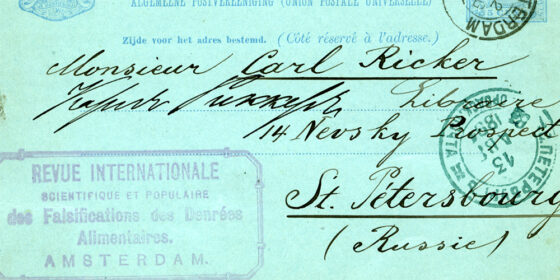 ALGEMEENE POSTVEREENIGING (UNION POSTALE UNIVERSELLE)
Zijde voor het adres bestemd. (Côté réservé à l'adresse.)
TERDAM
Monsieur Carl Ricker
Карл Риккеръ Libraire
14 Nevsky Prospect
St. Pétersbourg
(Russie)
13
REVUE INTERNATIONALE
SCIENTIFIQUE ET POPULAIRE
des Falsifications des Denrées
Alimentaires.
AMSTERDAM.